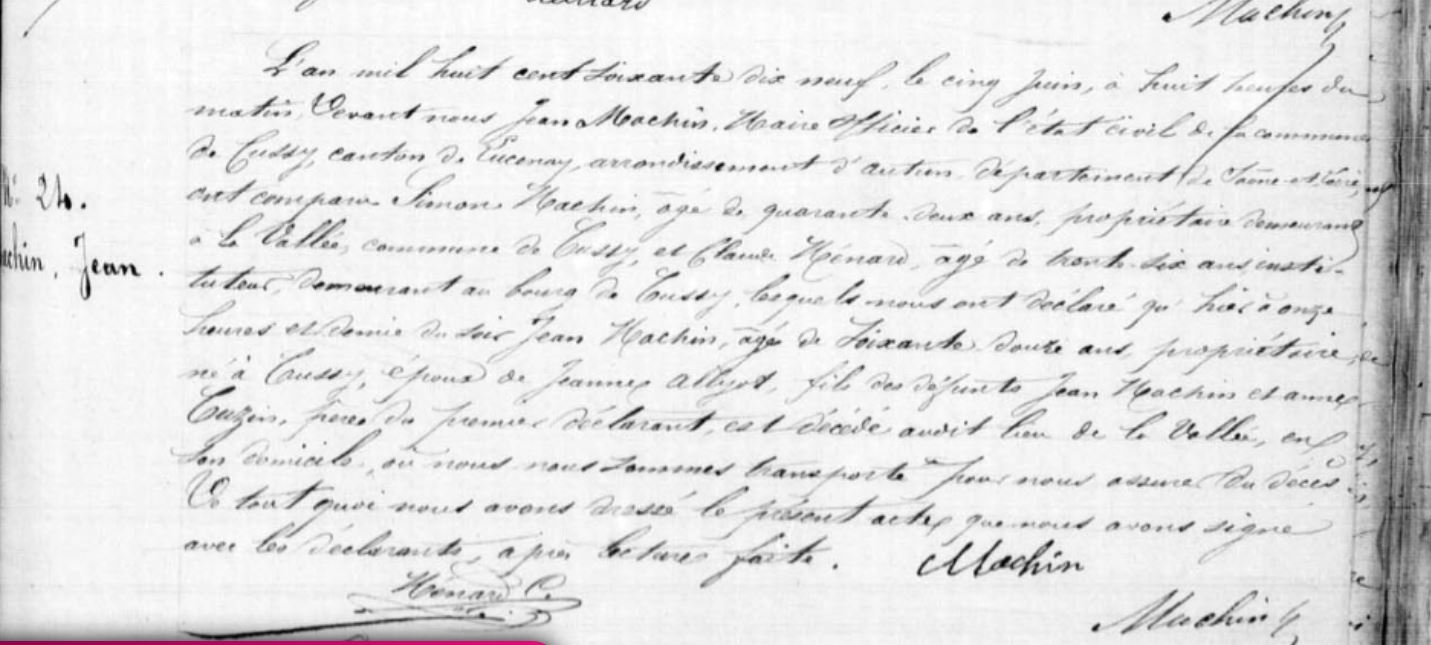 Machin
L'an mil huit cent soixante dix neuf, le cinq juin, à huit heures du
matin, Devant nous Jean Machin, Maire Officier de l'état civil de la commune
de Cussy, canton de Lucenay, arrondissement d'autun, département de Saône-et-Loire,
ont comparu Simon Machin, âgé de quarante deux ans, propriétaire demeurant
N° 24.
à la Vallée, commune de Cussy, et Claude Ménard, âgé de trente-six ans insti-
Machin, Jean.
tuteur, demeurant au bourg de Cussy, lesquels nous ont déclaré qu'hier à onze
heures et demie du soir Jean Machin, âgé de soixante douze ans, propriétaire,
né à Cussy, époux de Jeanne Allyot, fils des défunts Jean Machin et anne
Cuzin, père du premier déclarant, est décédé audit lieu de la Vallée, en
son domicile, où nous nous sommes transporté pour nous assurer du décès
De tout quoi nous avons dressé le présent acte, que nous avons signé
avec les déclarants, après lecture faite. Machin
Ménard C.
Machin